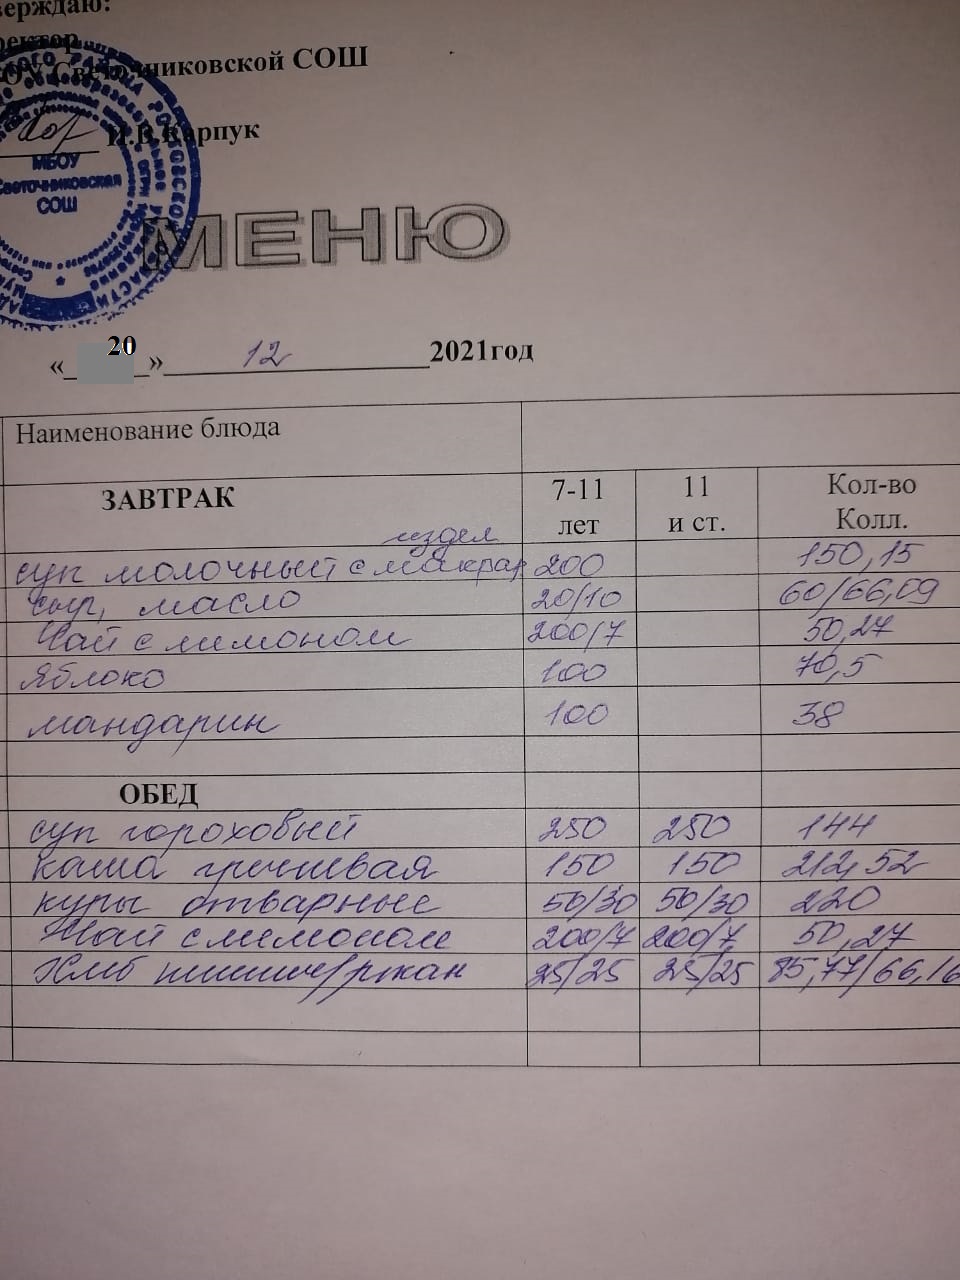 верждаю:
ректор
ОУ Светочниковской СОШ
И.В.Карпук
МБОУ
Светочниковская
СОШ
МЕНЮ
«_20_» 12 2021год
Наименование блюда
ЗАВТРАК 7-11 лет 11 и ст. Кол-во Колл.
издел
суп молочный с макар 200 150,15
сыр, масло 20/10 60/66,09
Чай с лимоном 200/7 50,27
Яблоко 100 70,5
мандарин 100 38
ОБЕД
суп гороховый 250 250 144
каша гречневая 150 150 212,52
куры отварные 50/30 50/30 220
Чай с лимоном 200/7 200/7 50,27
Хлеб пшенич/ржан 25/25 25/25 85,77/66,16